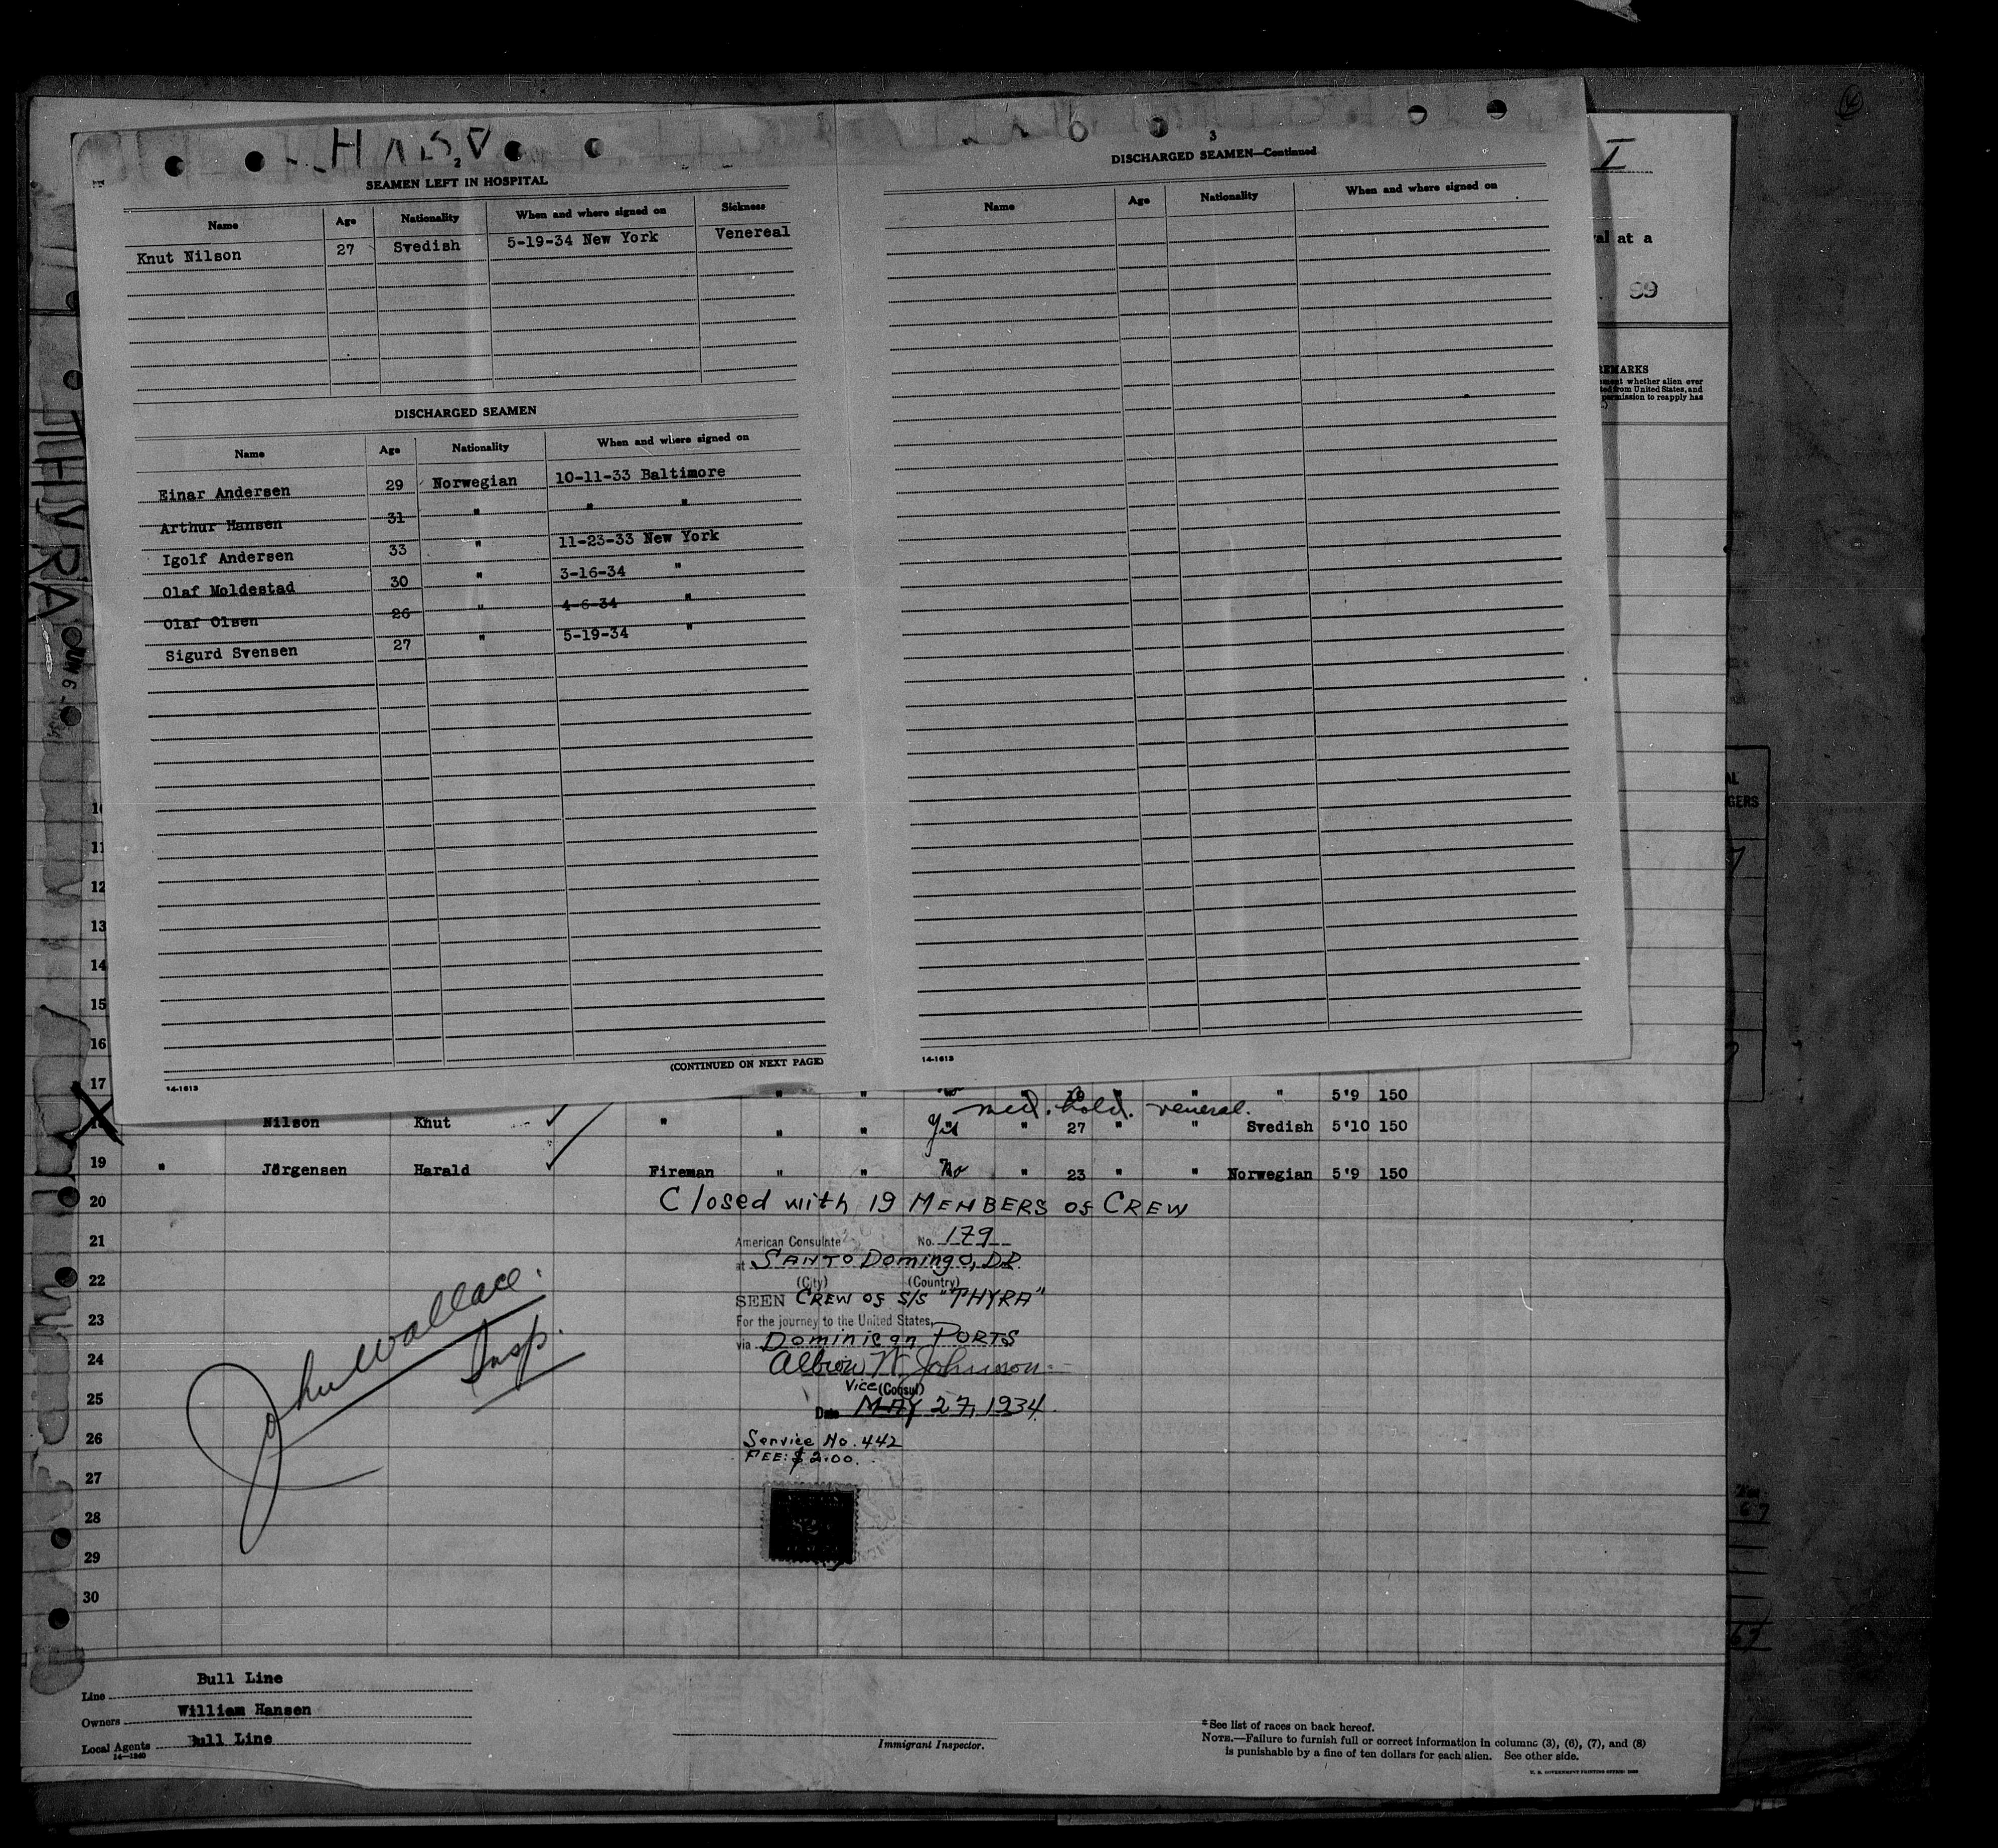 2
SEAMEN LEFT IN HOSPITAL
Name Age Nationality When and where signed on Sickness
Knut Nilson 27 Swedish 5-19-34 New York Venereal
DISCHARGED SEAMEN
Name Age Nationality When and where signed on
Einar Andersen 29 Norwegian 10-11-33 Baltimore
Arthur Hansen 31 " " "
Igolf Andersen 33 " 11-23-33 New York
Olaf Moldestad 30 " 3-16-34 "
Olaf Olsen 26 " 4-6-34 "
Sigurd Svensen 27 " 5-19-34 "
(CONTINUED ON NEXT PAGE)
14-1613
3
DISCHARGED SEAMEN—Continued
Name Age Nationality When and where signed on
14-1613
I
al at a
99
REMARKS
whether alien ever
from United States, and
permission to reapply has
THYRA
JUN 6
10
11
12
13
14
15
16
17 " " " " " " 5'9 150
med. hold. veneral.
Nilson Knut " " " Yes " 27 " " Swedish 5'10 150
19 " Jørgensen Harald Fireman " " No " 23 " " Norwegian 5'9 150
20 Closed with 19 MEMBERS of CREW
21 American Consulate No. 179
at SANTO Domingo, D.R.
22 (City) (Country)
SEEN CREW of S/S "THYRA"
23 For the journey to the United States,
via Dominican PORTS
24 Albion W. Johnson
Vice (Consul)
25 Date MAY 27, 1934
John Wallace.
Insp.
26 Service No. 442
FEE: $2.00.
27
28
29
30
Line Bull Line
Owners William Hansen
Local Agents Bull Line
14-1240
Immigrant Inspector.
* See list of races on back hereof.
NOTE.—Failure to furnish full or correct information in columns (3), (6), (7), and (8)
is punishable by a fine of ten dollars for each alien. See other side.
U. S. GOVERNMENT PRINTING OFFICE